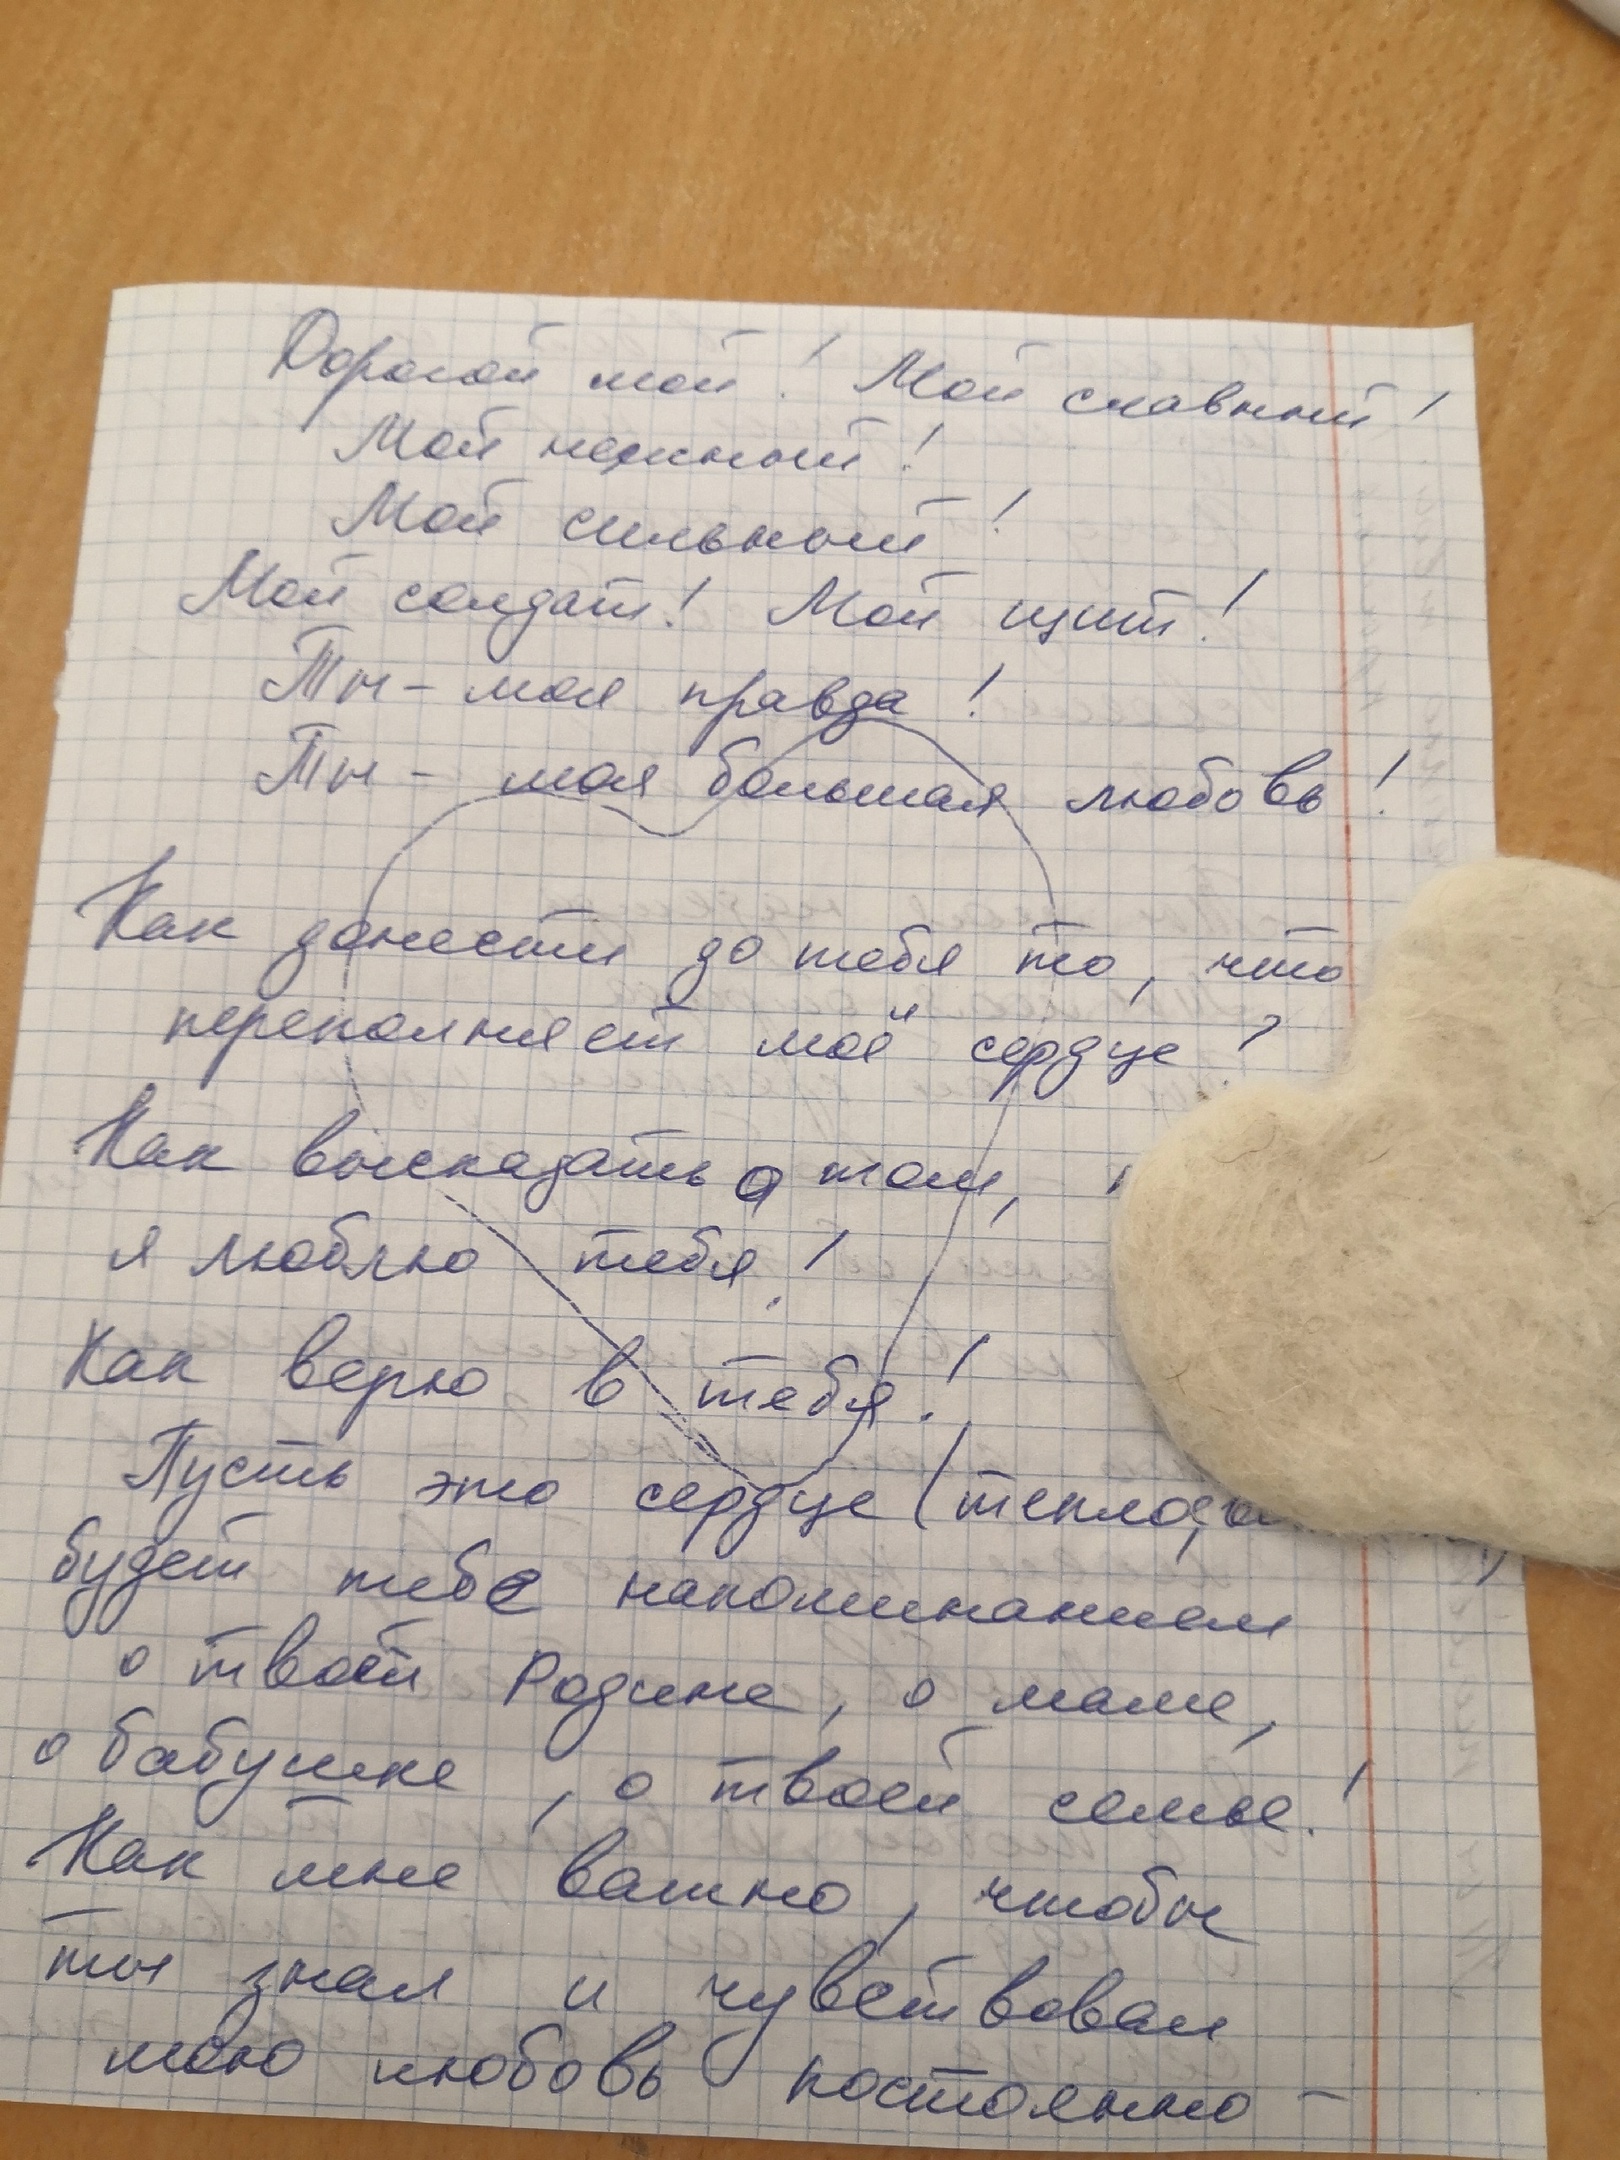 Дорогой мой! Мой славный!
Мой нежный!
Мой сильный!
Мой солдат! Мой щит!
Ты - моя правда!
Ты - моя большая любовь!
Как донести до тебя то, что
переполняет моё сердце?
Как высказать о том,
я люблю тебя!
Как верю в тебя!
Пусть это сердце (тепло,
будет тебе напоминанием
о твоей Родине, о маме,
о бабушке, о твоей семье!
Как мне важно, чтобы
ты знал и чувствовал
мою любовь постоянно -